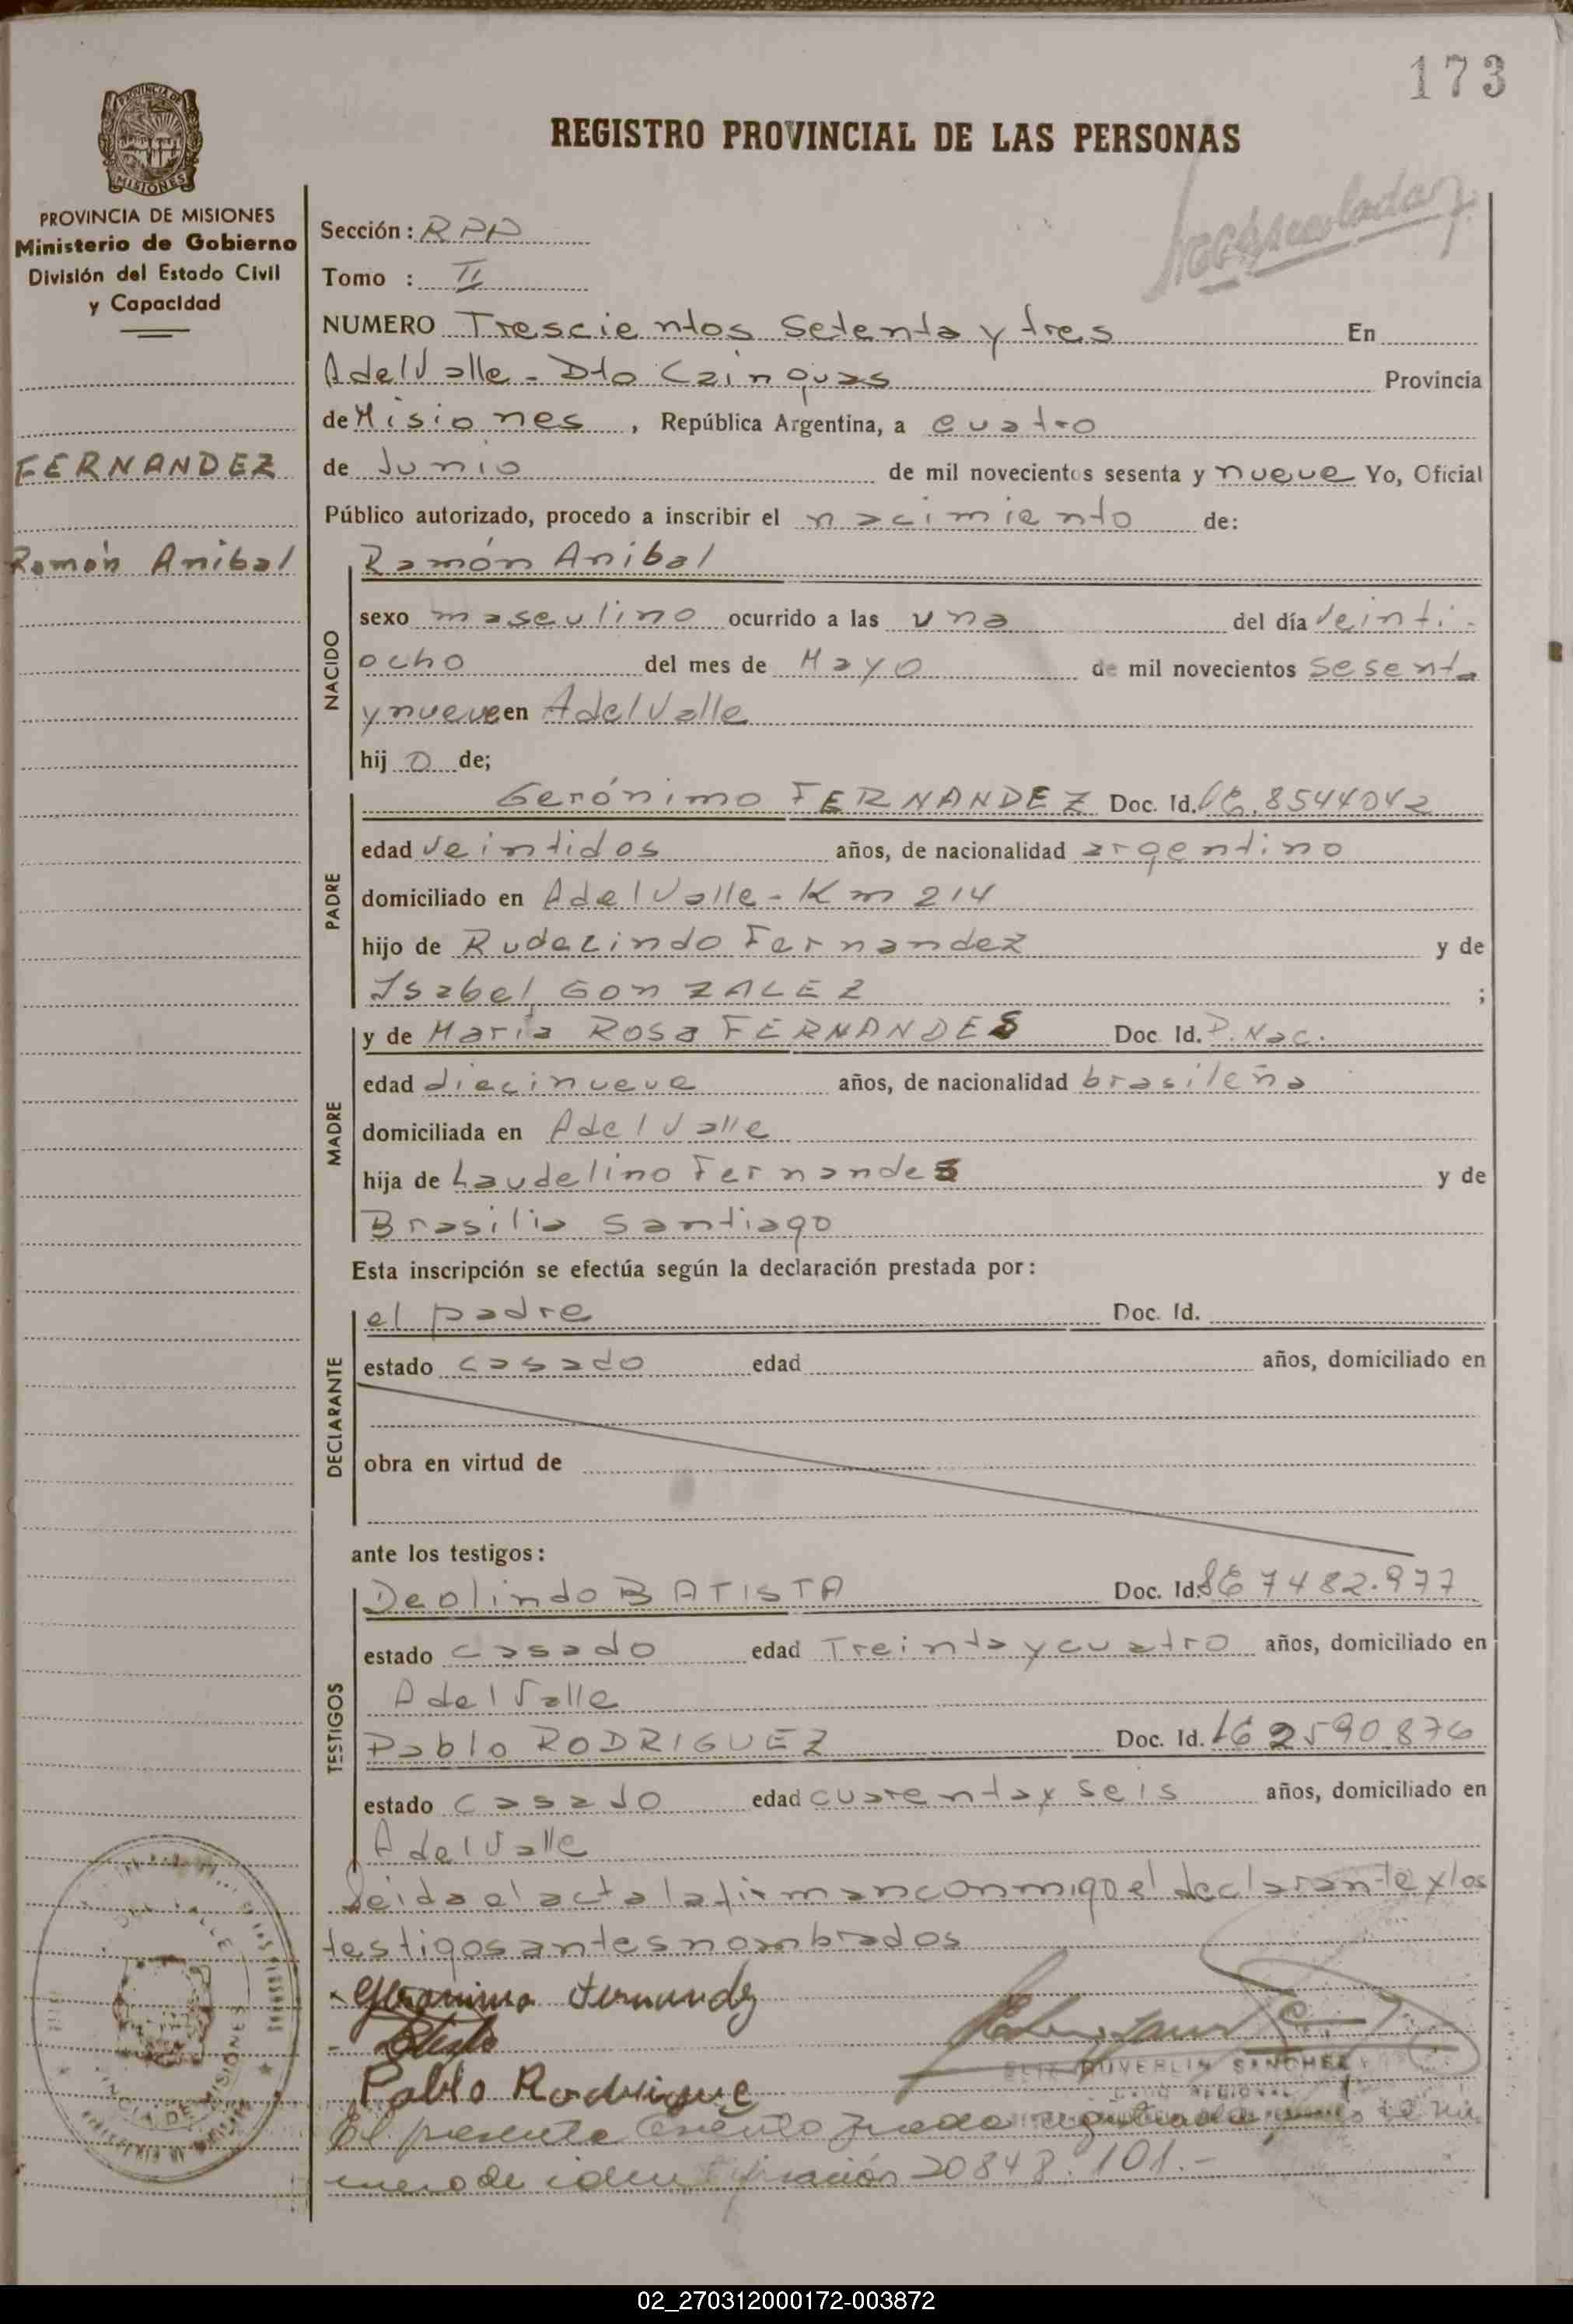 173
REGISTRO PROVINCIAL DE LAS PERSONAS
MISIONES
PROVINCIA DE MISIONES
Ministerio de Gobierno
División del Estado Civil
y Capacidad
FERNANDEZ
Ramón Anibal
Sección: RPP
Tomo : II
NUMERO Trescientos Setenta y tres En
A del Valle - Dto Cainguas Provincia
de Misiones, República Argentina, a cuatro
de Junio de mil novecientos sesenta y nueve Yo, Oficial
Público autorizado, procedo a inscribir el nacimiento de:
NACIDO
Ramón Anibal
sexo masculino ocurrido a las una del día Veinti-
ocho del mes de Mayo de mil novecientos sesenta
y nueve en A del Valle
hij o de;
PADRE
Gerónimo FERNANDEZ Doc. Id. 8544042
edad veintidos años, de nacionalidad argentino
domiciliado en A del Valle - Km 214
hijo de Rudecindo Fernandez y de
Isabel GONZALEZ ;
MADRE
y de María ROSA FERNANDES Doc. Id. P. Nac.
edad diecinueve años, de nacionalidad brasileña
domiciliada en A del Valle
hija de Laudelino Fernandes y de
Brasilia Santiago
Esta inscripción se efectúa según la declaración prestada por:
DECLARANTE
el padre Doc. Id.
estado casado edad años, domiciliado en
obra en virtud de
ante los testigos:
TESTIGOS
Deolindo BATISTA Doc. Id. 7482.977
estado casado edad Treinta y cuatro años, domiciliado en
A del Valle
Pablo RODRIGUEZ Doc. Id. 2590.876
estado casado edad cuarenta y seis años, domiciliado en
A del Valle
Leida el acta la firman conmigo el declarante y los
testigos antes nombrados
Geronimo Fernandez
Pablo Rodrigue
SANCHEZ
El presente queda
mero de identificación 20848.101.-
02_270312000172-003872